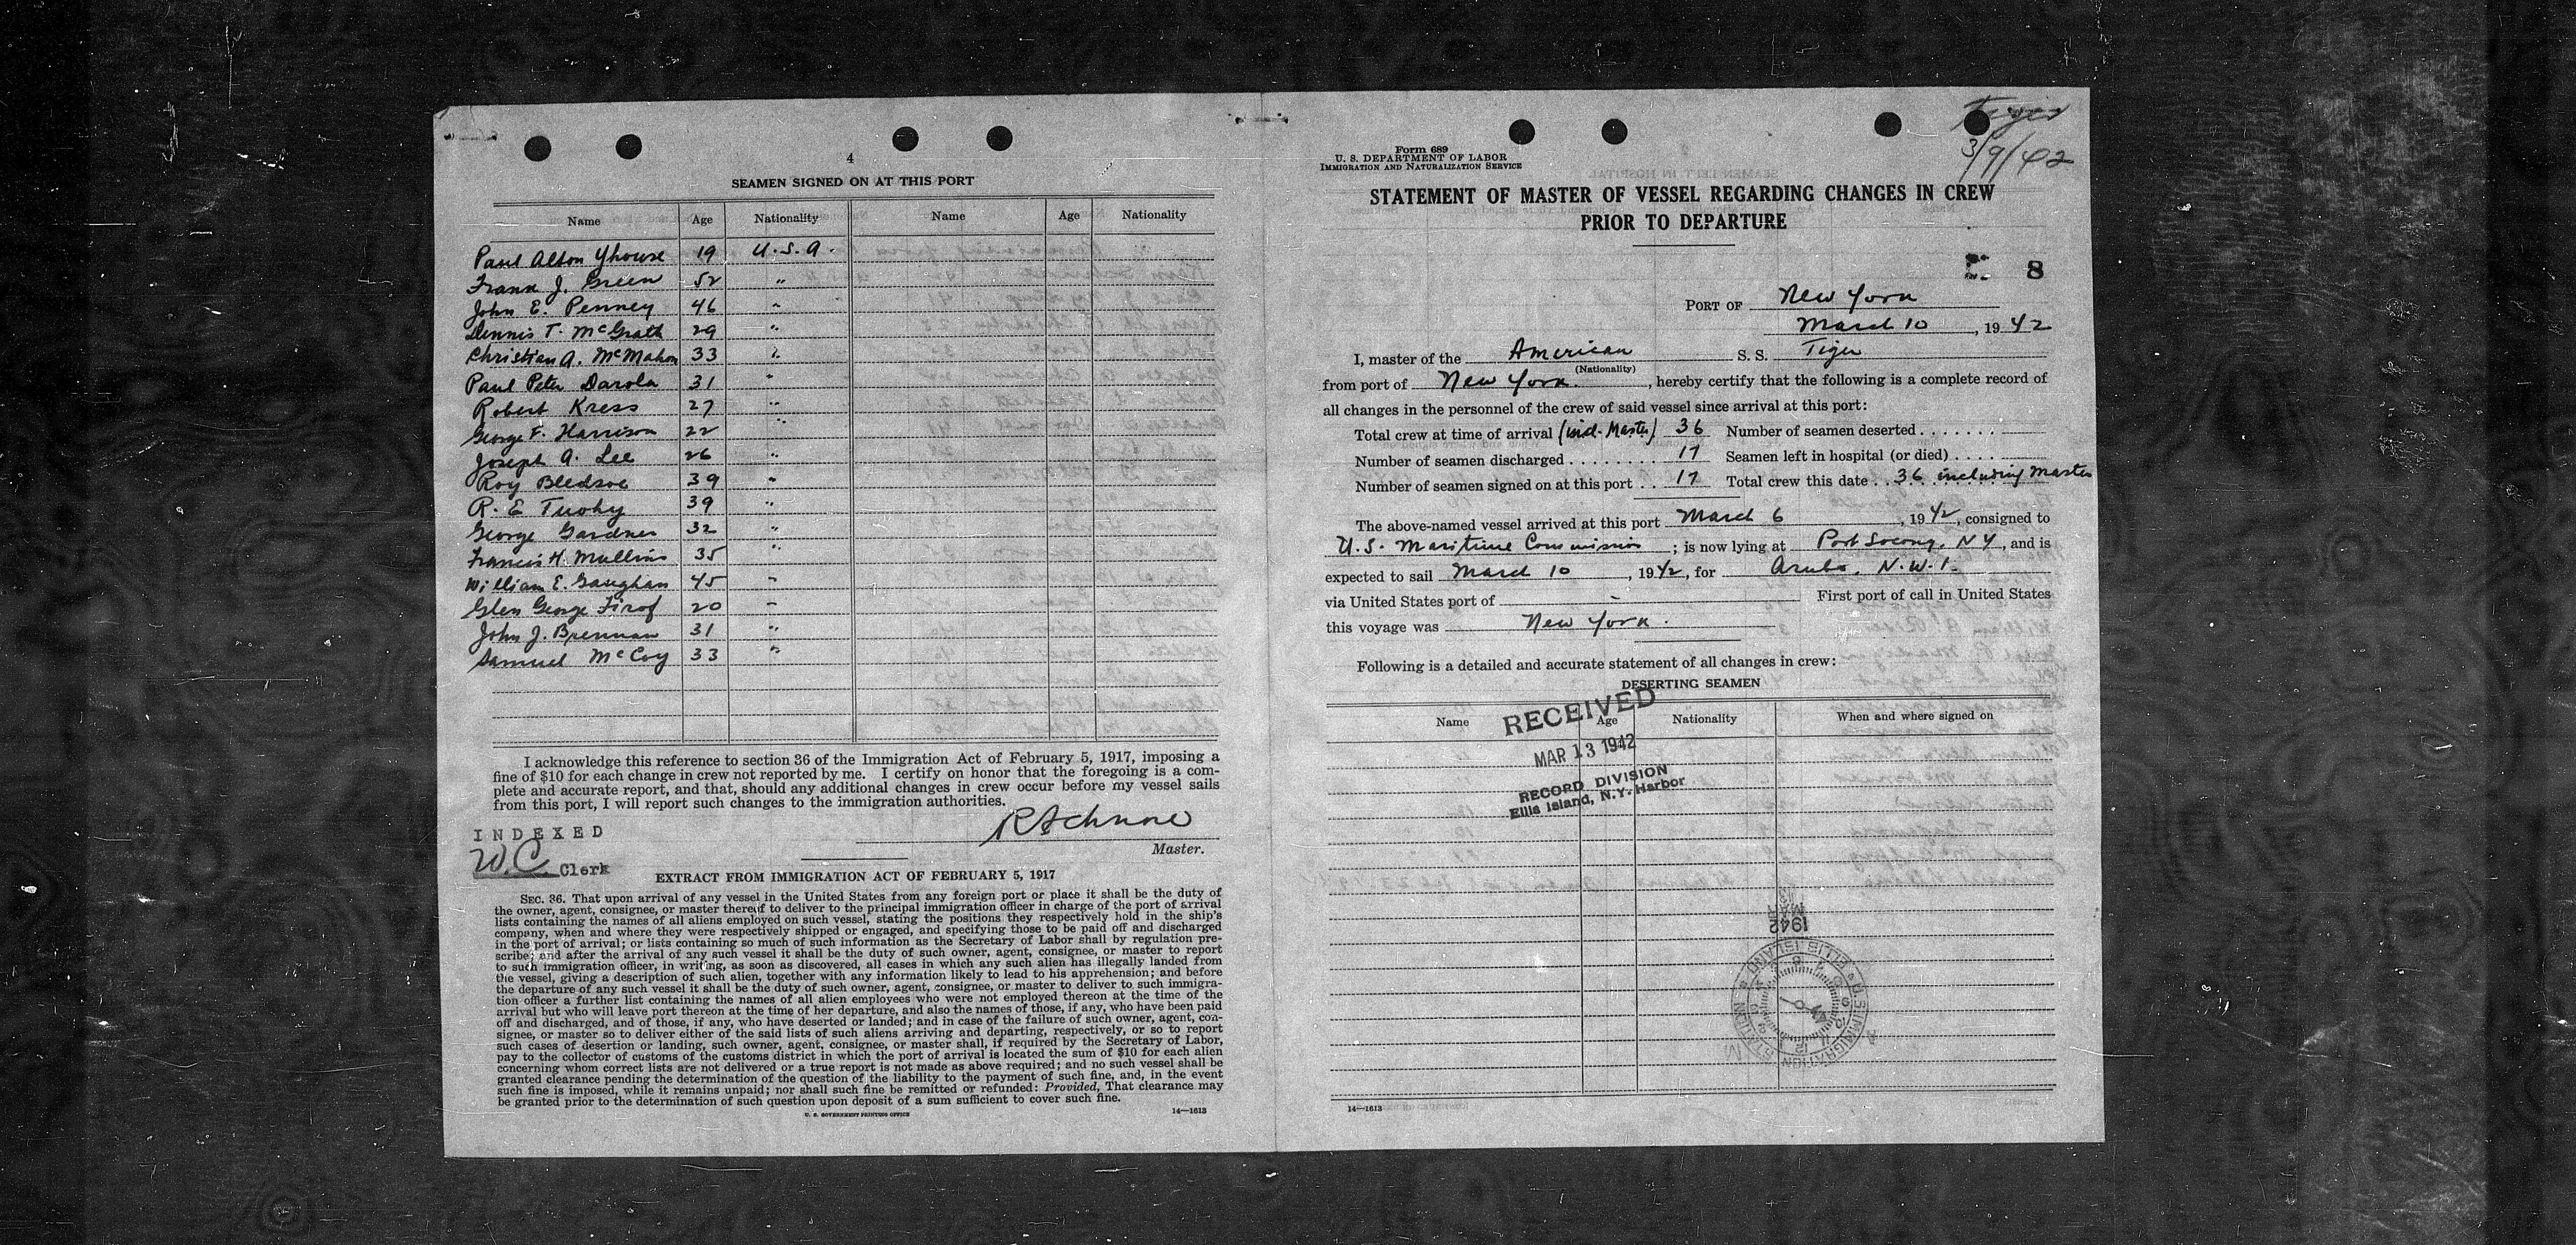 4
SEAMEN SIGNED ON AT THIS PORT
Name Age Nationality Name Age Nationality
Paul Alton Yhouse 19 U.S.A.
Frank J. Green 52 "
John E. Penney 46 "
Dennis T. McGrath 29 "
Christian A. McMahon 33 "
Paul Peter Darola 31 "
Robert Kress 27 "
George F. Harrison 22 "
Joseph A. Lee 26 "
Roy Bledsoe 39 "
R. E Tuohy 39
George Gardner 32 "
Francis H. Mullins 35 "
William E. Gaughan 45 "
Glen George Firof 20 "
John J. Brennan 31 "
Samuel McCoy 33 "
I acknowledge this reference to section 36 of the Immigration Act of February 5, 1917, imposing a
fine of $10 for each change in crew not reported by me. I certify on honor that the foregoing is a com-
plete and accurate report, and that, should any additional changes in crew occur before my vessel sails
from this port, I will report such changes to the immigration authorities.
INDEXED
W.C. Clerk
Master.
EXTRACT FROM IMMIGRATION ACT OF FEBRUARY 5, 1917
SEC. 36. That upon arrival of any vessel in the United States from any foreign port or place it shall be the duty of
the owner, agent, consignee, or master thereof to deliver to the principal immigration officer in charge of the port of arrival
lists containing the names of all aliens employed on such vessel, stating the positions they respectively hold in the ship's
company, when and where they were respectively shipped or engaged, and specifying those to be paid off and discharged
in the port of arrival; or lists containing so much of such information as the Secretary of Labor shall by regulation pre-
scribe; and after the arrival of any such vessel it shall be the duty of such owner, agent, consignee, or master to report
to such immigration officer, in writing, as soon as discovered, all cases in which any such alien has illegally landed from
the vessel, giving a description of such alien, together with any information likely to lead to his apprehension; and before
the departure of any such vessel it shall be the duty of such owner, agent, consignee, or master to deliver to such immigra-
tion officer a further list containing the names of all alien employees who were not employed thereon at the time of the
arrival but who will leave port thereon at the time of her departure, and also the names of those, if any, who have been paid
off and discharged, and of those, if any, who have deserted or landed; and in case of the failure of such owner, agent, con-
signee, or master so to deliver either of the said lists of such aliens arriving and departing, respectively, or so to report
such cases of desertion or landing, such owner, agent, consignee, or master shall, if required by the Secretary of Labor,
pay to the collector of customs of the customs district in which the port of arrival is located the sum of $10 for each alien
concerning whom correct lists are not delivered or a true report is not made as above required; and no such vessel shall be
granted clearance pending the determination of the question of the liability to the payment of such fine, and, in the event
such fine is imposed, while it remains unpaid; nor shall such fine be remitted or refunded: Provided, That clearance may
be granted prior to the determination of such question upon deposit of a sum sufficient to cover such fine.
U. S. GOVERNMENT PRINTING OFFICE 14—1613
Tiger
3/9/42
Form 689
U. S. DEPARTMENT OF LABOR
IMMIGRATION AND NATURALIZATION SERVICE
STATEMENT OF MASTER OF VESSEL REGARDING CHANGES IN CREW
PRIOR TO DEPARTURE
8
PORT OF New York
March 10, 1942
I, master of the American S. S. Tiger
(Nationality)
from port of New York., hereby certify that the following is a complete record of
all changes in the personnel of the crew of said vessel since arrival at this port:
Total crew at time of arrival (incl. Master) 36 Number of seamen deserted . . . . . . .
Number of seamen discharged . . . . . . . . 17 Seamen left in hospital (or died) . . . .
Number of seamen signed on at this port . . 17 Total crew this date . . 36 including Master
The above-named vessel arrived at this port March 6, 1942, consigned to
U.S. Maritime Commission; is now lying at Port Socony, NY, and is
expected to sail March 10, 1942, for Aruba, N.W.I.
via United States port of - First port of call in United States
this voyage was New York.
Following is a detailed and accurate statement of all changes in crew:
DESERTING SEAMEN
Name Age Nationality When and where signed on
RECEIVED
MAR 13 1942
RECORD DIVISION
Ellis Island, N.Y. Harbor
1942
MAR 13
U.S. IMMIGRATION STATION
ELLIS ISLAND
14—1613